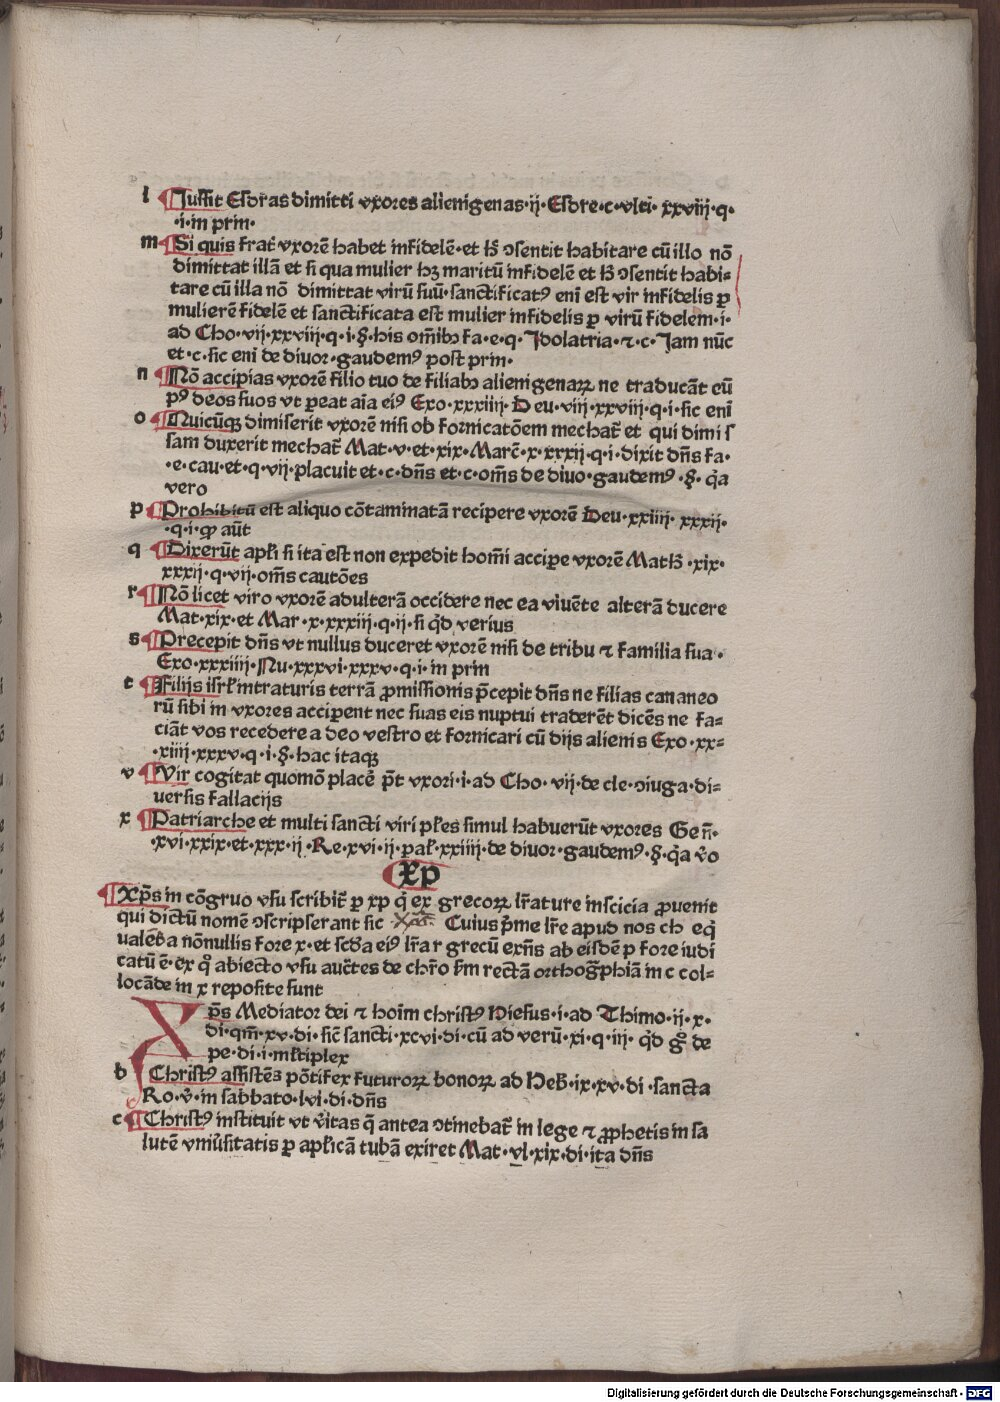 l Jussit Esdras dimitti vxores alienigenas·ij·Esdre·c·vlti·xxviij·q·
·i·in prin·
m Si quis frat̃ vxorē habet infidelē·et hͦ ↄsentit habitare cū illo nō
dimittat illā et si qua mulier hꝫ maritū infidelē et hͦ ↄsentit habi-
tare cū illa nō dimittat virū suū·sanctificatꝰ eni est vir infidelis ꝑ
mulierē fidelē et sanctificata est mulier infidelis ꝑ virū fidelem·i·
ad Cho·vij·xxviij·q·i·§·his om̄ibꝫ fa·e·q·Jdolatria·⁊·c·Jam nūc
et·c·sic eni de diuor·gaudemꝰ post prin·
n Nō accipias vxorē filio tuo de filiabꝫ alienigenaꝝ ne traducāt eū
pꝰ deos suos vt ꝑeat aīa eiꝰ Exo·xxxiiij·Deu·viij·xxviij·q·i·sic eni
o Quicūqꝫ dimiserit vxorē nisi ob fornicatōem mechat̃ et qui dimis
sam duxerit mechat̃ Mat·v·et·xix·Marc̄·x·xxxij·q·i·dixit dn̄s fa·
·e·cau·et·q·vij·placuit et·c·dn̄s et·c·om̄s de diuo·gaudemꝰ·§·q̄a
vero
p Prohibitū est aliquo cōtaminatā recipere vxorē Deu·xxiiij·xxxij·
·q·i·ꝙ aūt
q Dixerūt apl̄i si ita est non expedit hom̄i accipe vxorē Math̄·xix·
xxxij·q·vij·om̄s cautōes
r Nō licet viro vxorē adulterā occidere nec ea viuēte alterā ducere
Mat·xix·et Mar·x·xxxiij·q·ij·si q̄d verius
s Precepit dn̄s vt nullus duceret vxorē nisi de tribu ⁊ familia sua·
Exo·xxxiiij·Nu·xxxvi·xxxv·q·i·in prin
t Filijs isrl̄ intraturis terrā ꝓmissionis p̄cepit dn̄s ne filias cananeo
rū sibi in vxores acciperent nec suas eis nuptui traderēt dicēs ne fa-
ciāt vos recedere a deo vestro et fornicari cū dijs alienis Exo·xx-
·xiiij·xxxv·q·i·§·hac itaqꝫ
v Vir cogitat quomō placē p̄t vxori·i·ad Cho·vij·de cle·ↄiuga·di-
uersis fallacijs
x Patriarche et multi sancti viri pl̄es simul habuerūt vxores Gen̄·
·xvi·xxix·et·xxx·ij·Re·xvi·ij·pal̄·xxiiij·de diuor·gaudemꝰ·§·q̄a v̄o
Xp
Xp̄s in cōgruo vsu scribit̃ ꝑ xp q̄ ex grecoꝝ lr̄ature inscicia ꝓuenit
qui dictū nomē ↄscripserant sic Cuius p̄me lr̄e apud nos ch eq̄
ualēda nōnullis fore x·et scd̄a eiꝰ lr̄a r grecū exn̄s ab eisdē p fore iudi
catū ē·ex q̊ abiecto vsu auc̄tes de chr̄o s̄m rectā orthog̃phiā in c col-
locāde in x reposite sunt
Xp̄s Mediator dei ⁊ hoim christꝰ Hiesus·i·ad Thimo·ij·x·
di·qm̄·xv·di·sic̄ sancti·xcvi·di·cū ad verū·xi·q·iij·q̄d gͦ de
pe·di·i·ml̄tiplex
b Christꝰ assistēs pōtifex futuroꝝ bonoꝝ ad Heb̄·ix·xv·di·sancta
Ro·v̄·in sabbato·lvi·di·dn̄s
c Christꝰ instituit vt v̄itas q̄ antea ↄtinebat̃ in lege ⁊ ꝓphetis in sa
lutē vniūsitatis ꝑ apl̄icā tubā exiret Mat·vl·xix·di·ita dn̄s
Digitalisierung gefördert durch die Deutsche Forschungsgemeinschaft · DFG